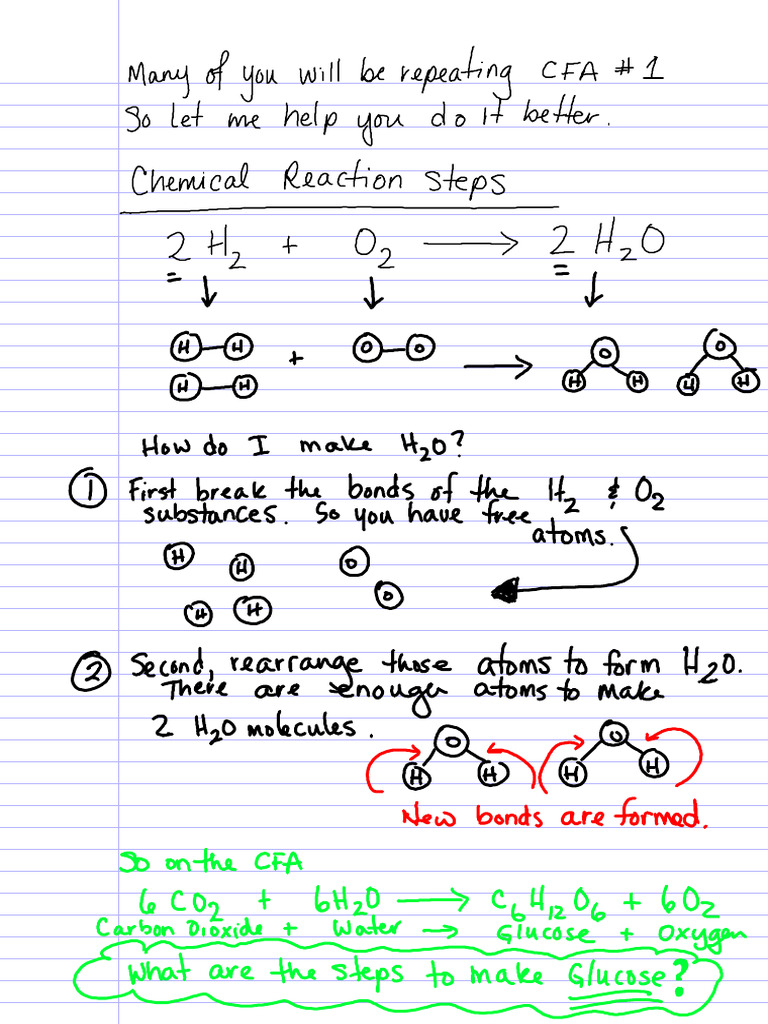 Many of you will be repeating CFA # 1
So let me help you do it better.
Chemical Reaction Steps
2 H₂ + O₂ → 2 H₂O
H H + O O → O O
H H H H H H
How do I make H₂O?
① First break the bonds of the H₂ & O₂
substances. So you have free
atoms.
H H O
H H O
② Second, rearrange those atoms to form H₂O.
There are enough atoms to make
2 H₂O molecules.
O O
H H H H
New bonds are formed.
So on the CFA
6 CO₂ + 6H₂O → C₆H₁₂O₆ + 6O₂
Carbon Dioxide + Water → Glucose + Oxygen
What are the steps to make Glucose?